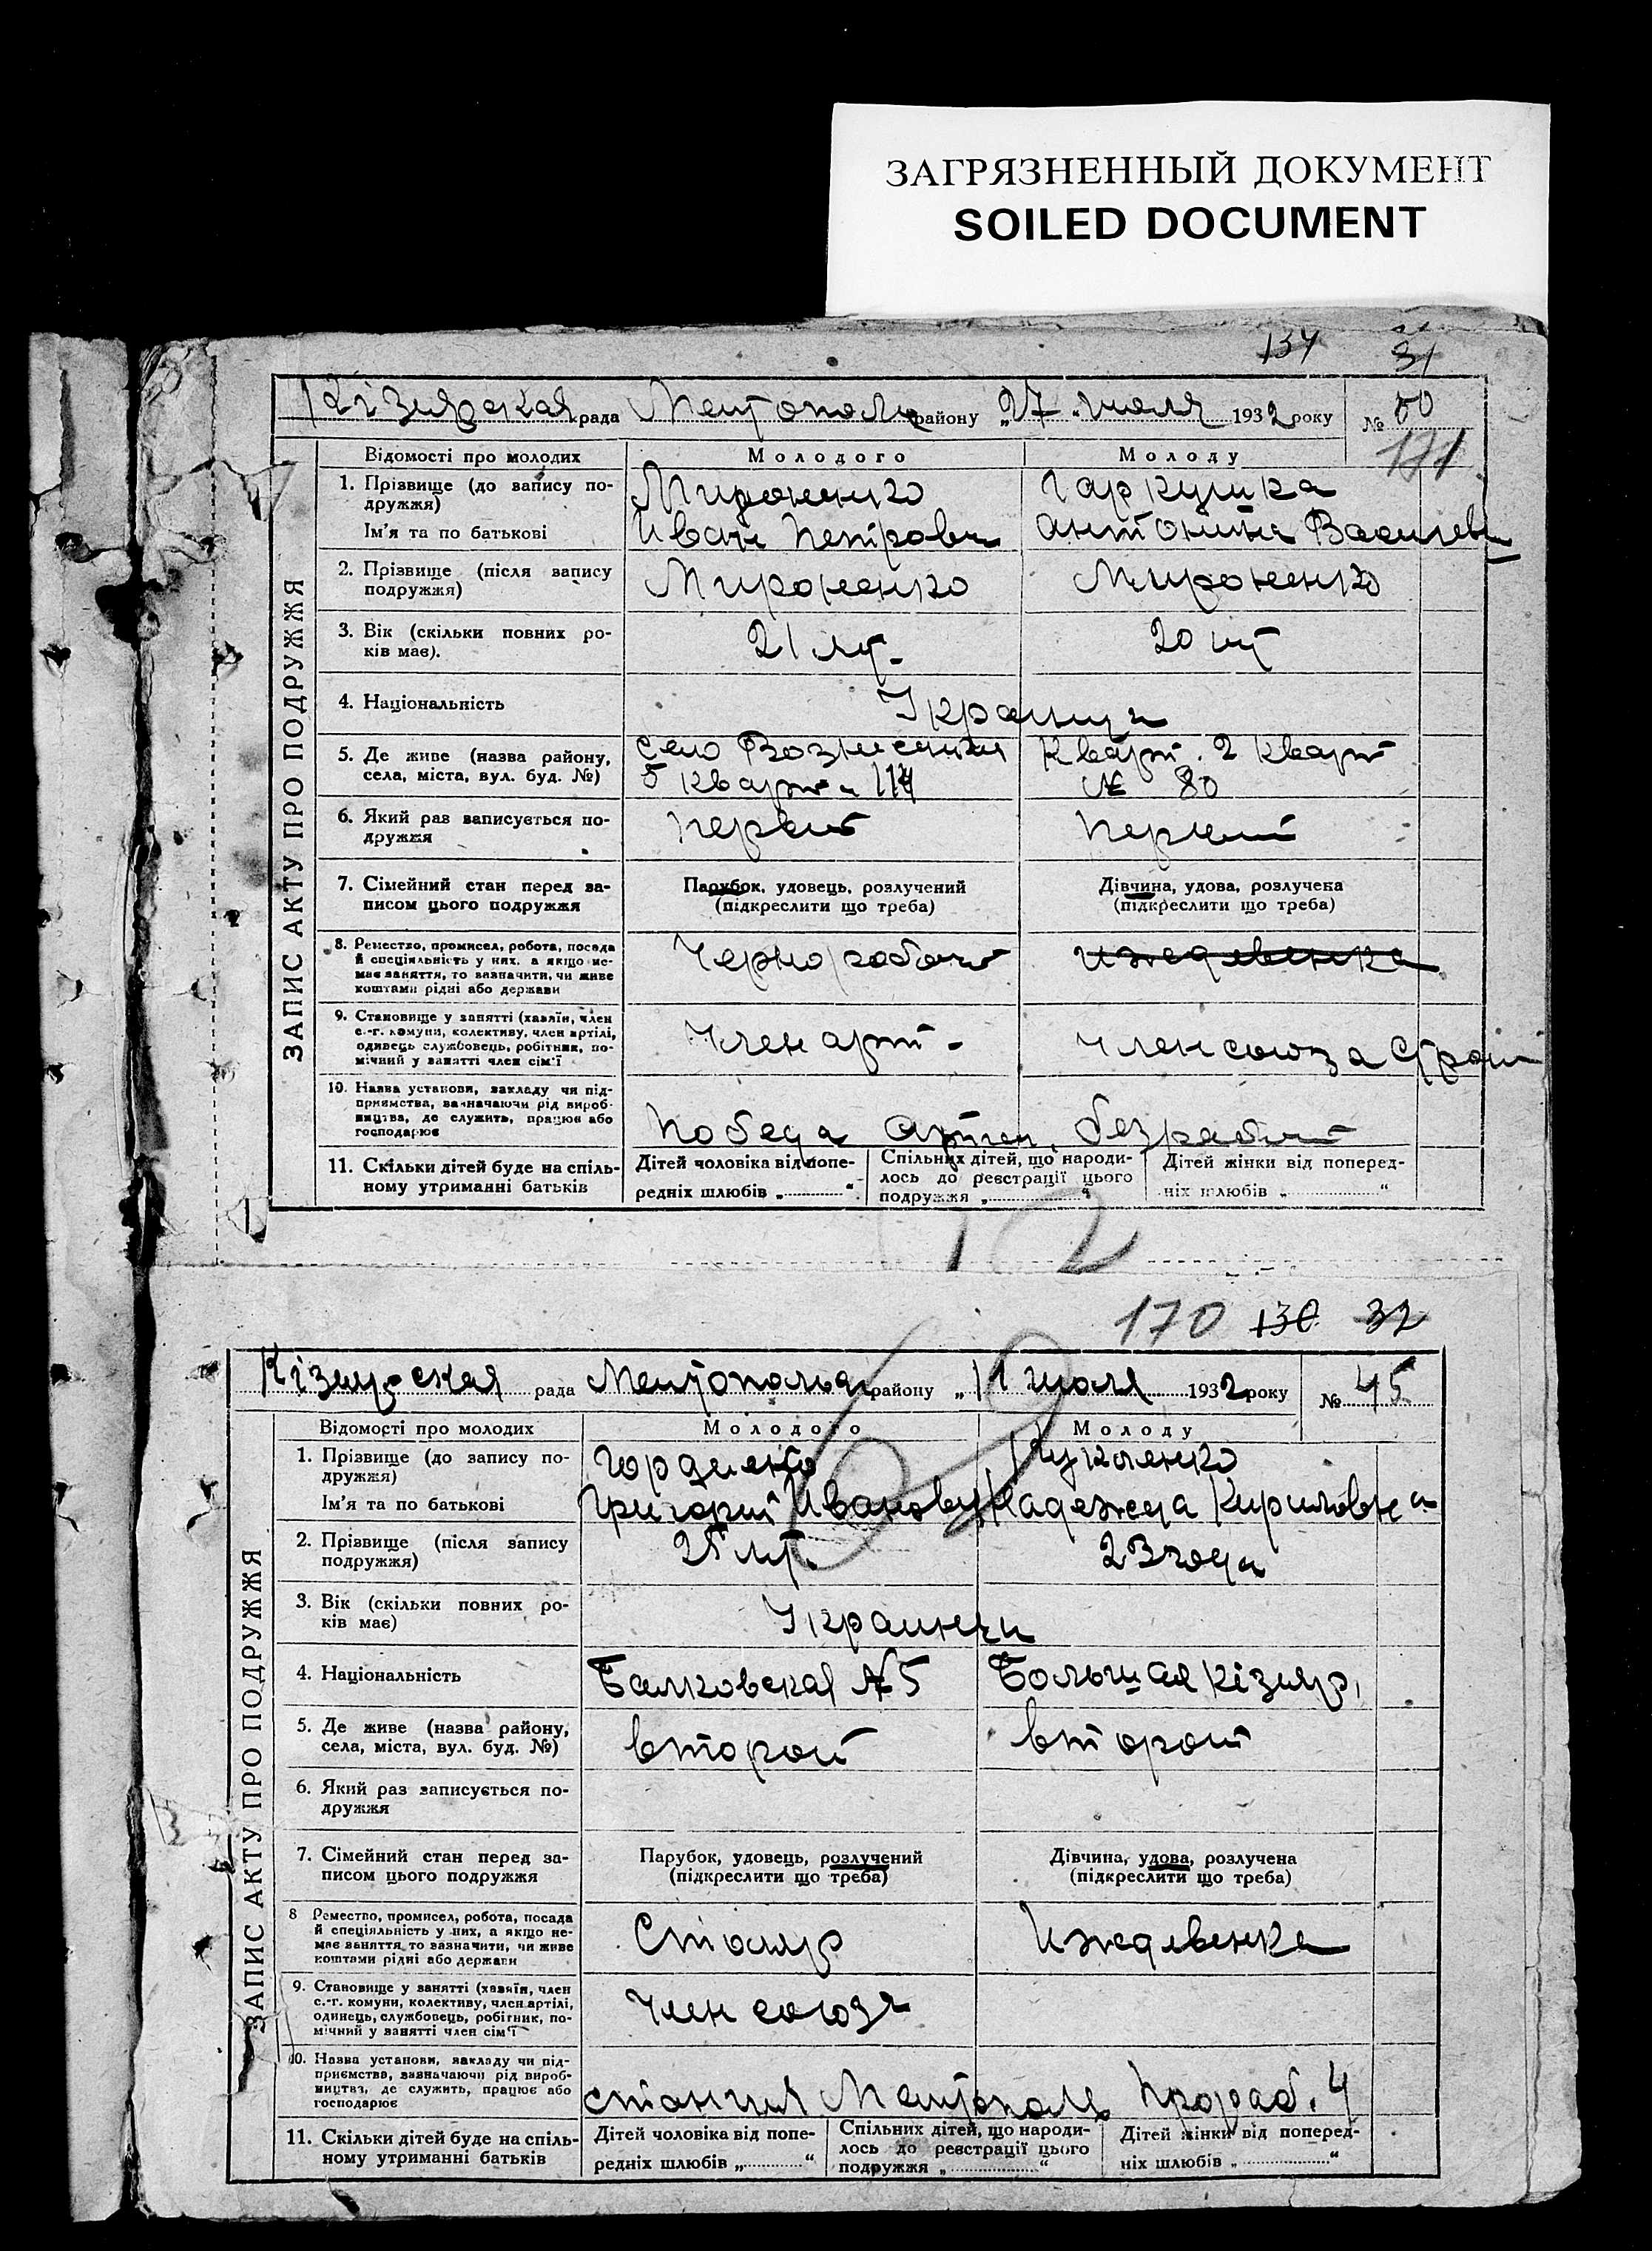 ЗАГРЯЗНЕННЫЙ ДОКУМЕНТ
SOILED DOCUMENT
134 31
Кізиярская рада Мелітополь району „27 „ июля 1932 року № 50
171
ЗАПИС АКТУ ПРО ПОДРУЖЖЯ
Відомості про молодих Молодого Молоду
1. Прізвище (до запису по-
дружжя) Мироненко Гаркушка
Ім'я та по батькові Иван Петрович Антонина Василевн
2. Прізвище (після запису
подружжя) Мироненко Мироненко
3. Вік (скільки повних ро-
ків має). 21 лет 20 лет
4. Національність Украинцы
5. Де живе (назва району,
села, міста, вул. буд. №)
село Вознесенка Кварт. 2 Кварт
5 Кварт. 114 № 80
6. Який раз записується по-
дружжя первый первый
7. Сімейний стан перед за-
писом цього подружжя
Парубок, удовець, розлучений Дівчина, удова, розлучена
(підкреслити що треба) (підкреслити що треба)
8. Ремество, промисел, робота, посада
й спеціяльність у них, а якщо не-
має заняття, то зазначити, чи живе
коштами рідні або держави
Чернорабочий иждевенка
9. Становище у занятті (хазяїн, член
с.-г. комуни, колективу, член артілі,
одинець, службовець, робітник, по-
мічний у занятті член сім'ї
Член арт. Член союза
10. Назва установи, закладу чи під-
приємства, зазначаючи рід вироб-
ництва, де служить, працює або
господарює
Победа Артел. безработн
11. Скільки дітей буде на спіль-
ному утриманні батьків
Дітей чоловіка від попе-
редніх шлюбів „ “
Спільних дітей, що народи-
лось до реєстрації цього
подружжя „ “
Дітей жінки від поперед-
ніх шлюбів „ “
12
170 130 32
Кізиярская рада Мелітопольск району „11 июля 1932 року № 45
69
ЗАПИС АКТУ ПРО ПОДРУЖЖЯ
Відомості про молодих Молодого Молоду
1. Прізвище (до запису по-
дружжя) Гордиенко Кукленко
Ім'я та по батькові Григорий Иванович Надежда Кириловна
2. Прізвище (після запису
подружжя) 25 лет 23 года
3. Вік (скільки повних ро-
ків має) Украинцы
4. Національність Балковская № 5 Большая Кізияр.
5. Де живе (назва району,
села, міста, вул. буд. №) второй второй
6. Який раз записується по-
дружжя
7. Сімейний стан перед за-
писом цього подружжя
Парубок, удовець, розлучений Дівчина, удова, розлучена
(підкреслити що треба) (підкреслити що треба)
8 Ремество, промисел, робота, посада
й спеціяльність у них, а якщо не-
має заняття, то зазначити, чи живе
коштами рідні або держави
Столяр Иждевенка
9. Становище у занятті (хазяїн, член
с.-г. комуни, колективу, член артілі,
одинець, службовець, робітник, по-
мічний у занятті член сім'ї
Член союза
10. Назва установи, закладу чи під-
приємства, зазначаючи рід вироб-
ництва, де служить, працює або
господарює
станция Мелітополь Прораб. 4
11. Скільки дітей буде на спіль-
ному утриманні батьків
Дітей чоловіка від попе-
редніх шлюбів „ “
Спільних дітей, що народи-
лось до реєстрації цього
подружжя „ “
Дітей жінки від поперед-
ніх шлюбів „ “